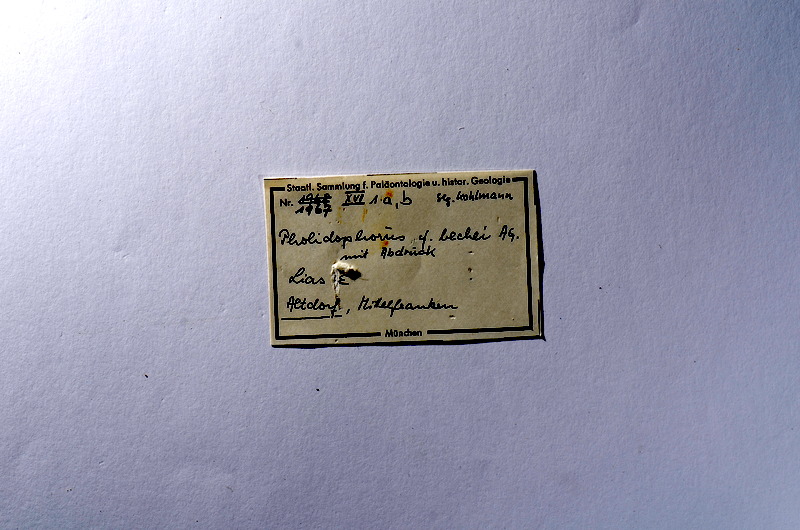 Staatl. Sammlung f. Paläontologie u. histor. Geologie
Nr. 1968 XVI 1 a, b Slg. Kohlmann
1967
Pholidophorus cf. bechei AG.
mit Abdruck
Lias ε
Altdorf, Mittelfranken
München